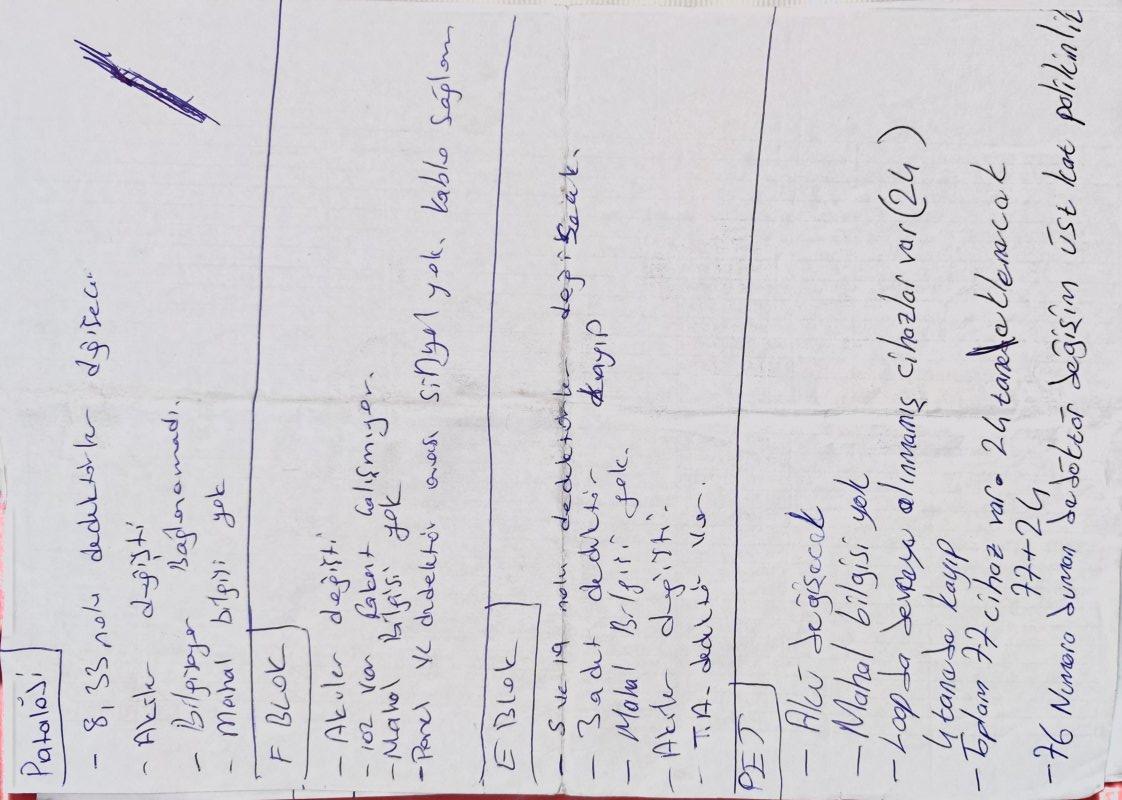 Patoloji
- 8, 33 nolu dedektörler değişecek
- Aküler değişti
- Bilgisayar Bağlanamadı.
- Mahal bilgisi yok
F BLOK
- Aküler değişti
- 102 Var Robot Çalışmıyor.
- Mahal Bilgisi yok
- Panel ve dedektör arası sinyal yok. kablo sağlam
E Blok
- 5 ve 19 nolu dedektörler değişecek.
- 3 adet dedektör kayıp
- Mahal Bilgisi yok.
- Aküler değişti.
- T.A. dedektör Var.
PET
- Akü değişecek
- Mahal bilgisi yok
- Loop da devreye alınmamış cihazlar var (24)
4 tanede kayıp
- Toplam 77 cihaz var. 24 tane eklenecek
77+24
- 76 Numara duman dedöktör değişim üst kat poliklinik